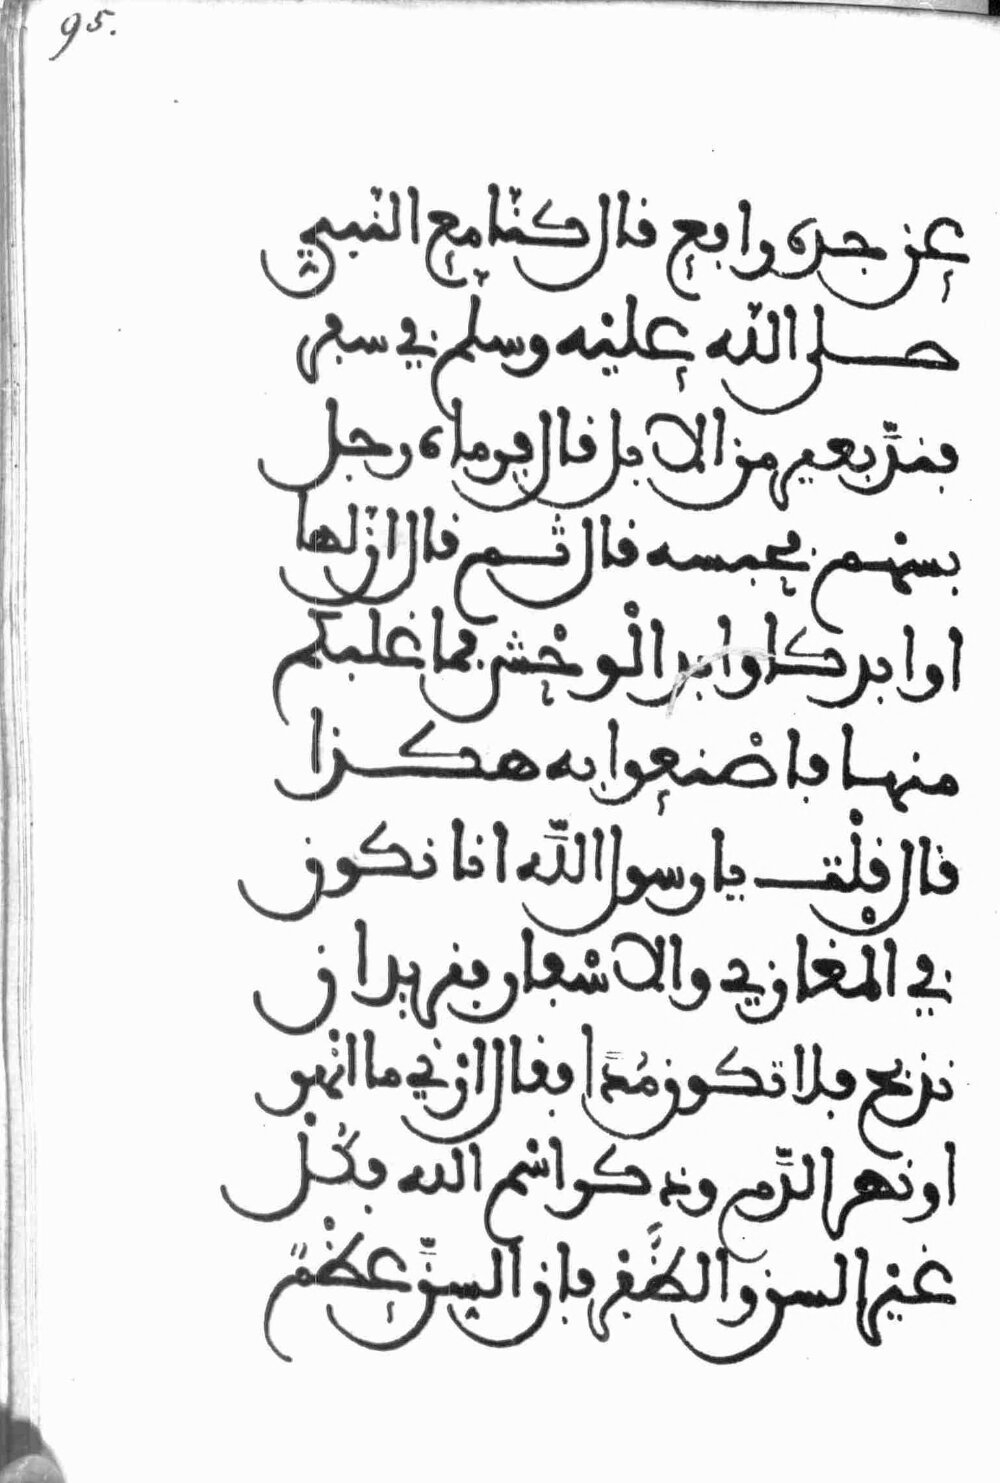 95.
عن جده رابع قال كنا مع النبي
صلى الله عليه وسلم في سفر
فند بعير من الابل قال فرماه رجل
بسهم فحبسه قال ثم قال ان لها
اوابد كاوابد الوحش فما غلبكم
منها فاصنعوا به هكذا
قال قلت يا رسول الله انا نكون
في المغازي والاسفار فنريد ان
نذبح فلا تكون مدا فقال ارني ما انهر
او نهر الدم وذكر اسم الله فكل
غير السن والظفر فان السن عظم